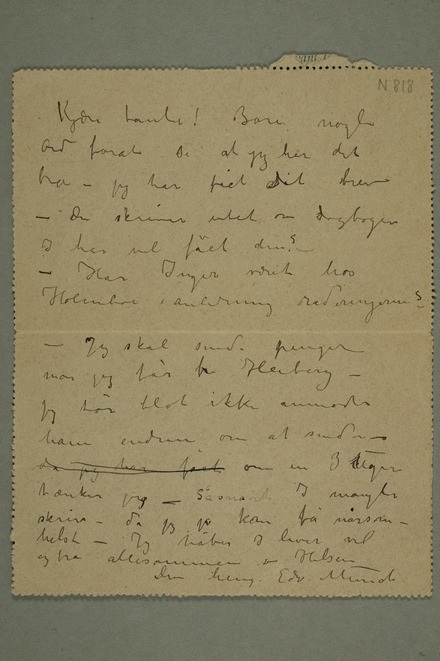 N 818
Kjære tante! Bare nogle
ord forat se at jeg har det
bra – jeg har fået dit brev
– Du skriver intet om dagbogen
I har vel fået den?
– Har Inger været hos
Holmboe i anledning raderingerne?
– Jeg skal sende penger
når jeg får fra Heiberg –
jeg tør blot ikke anmode
ham endnu om at sende –
da jeg har fået om en 3 uger
tænker jeg – Såsnart I mangler
skriv – da jeg jo kan få nårsom-
helst – Jeg håber I lever vel
og bra allesammen Hilsen
Din heng. Edv. Munch